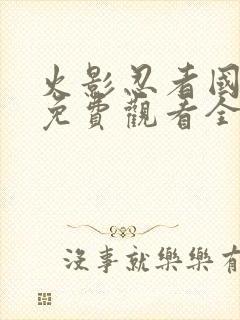 火影忍者國
免費觀看全
沒事就樂樂有